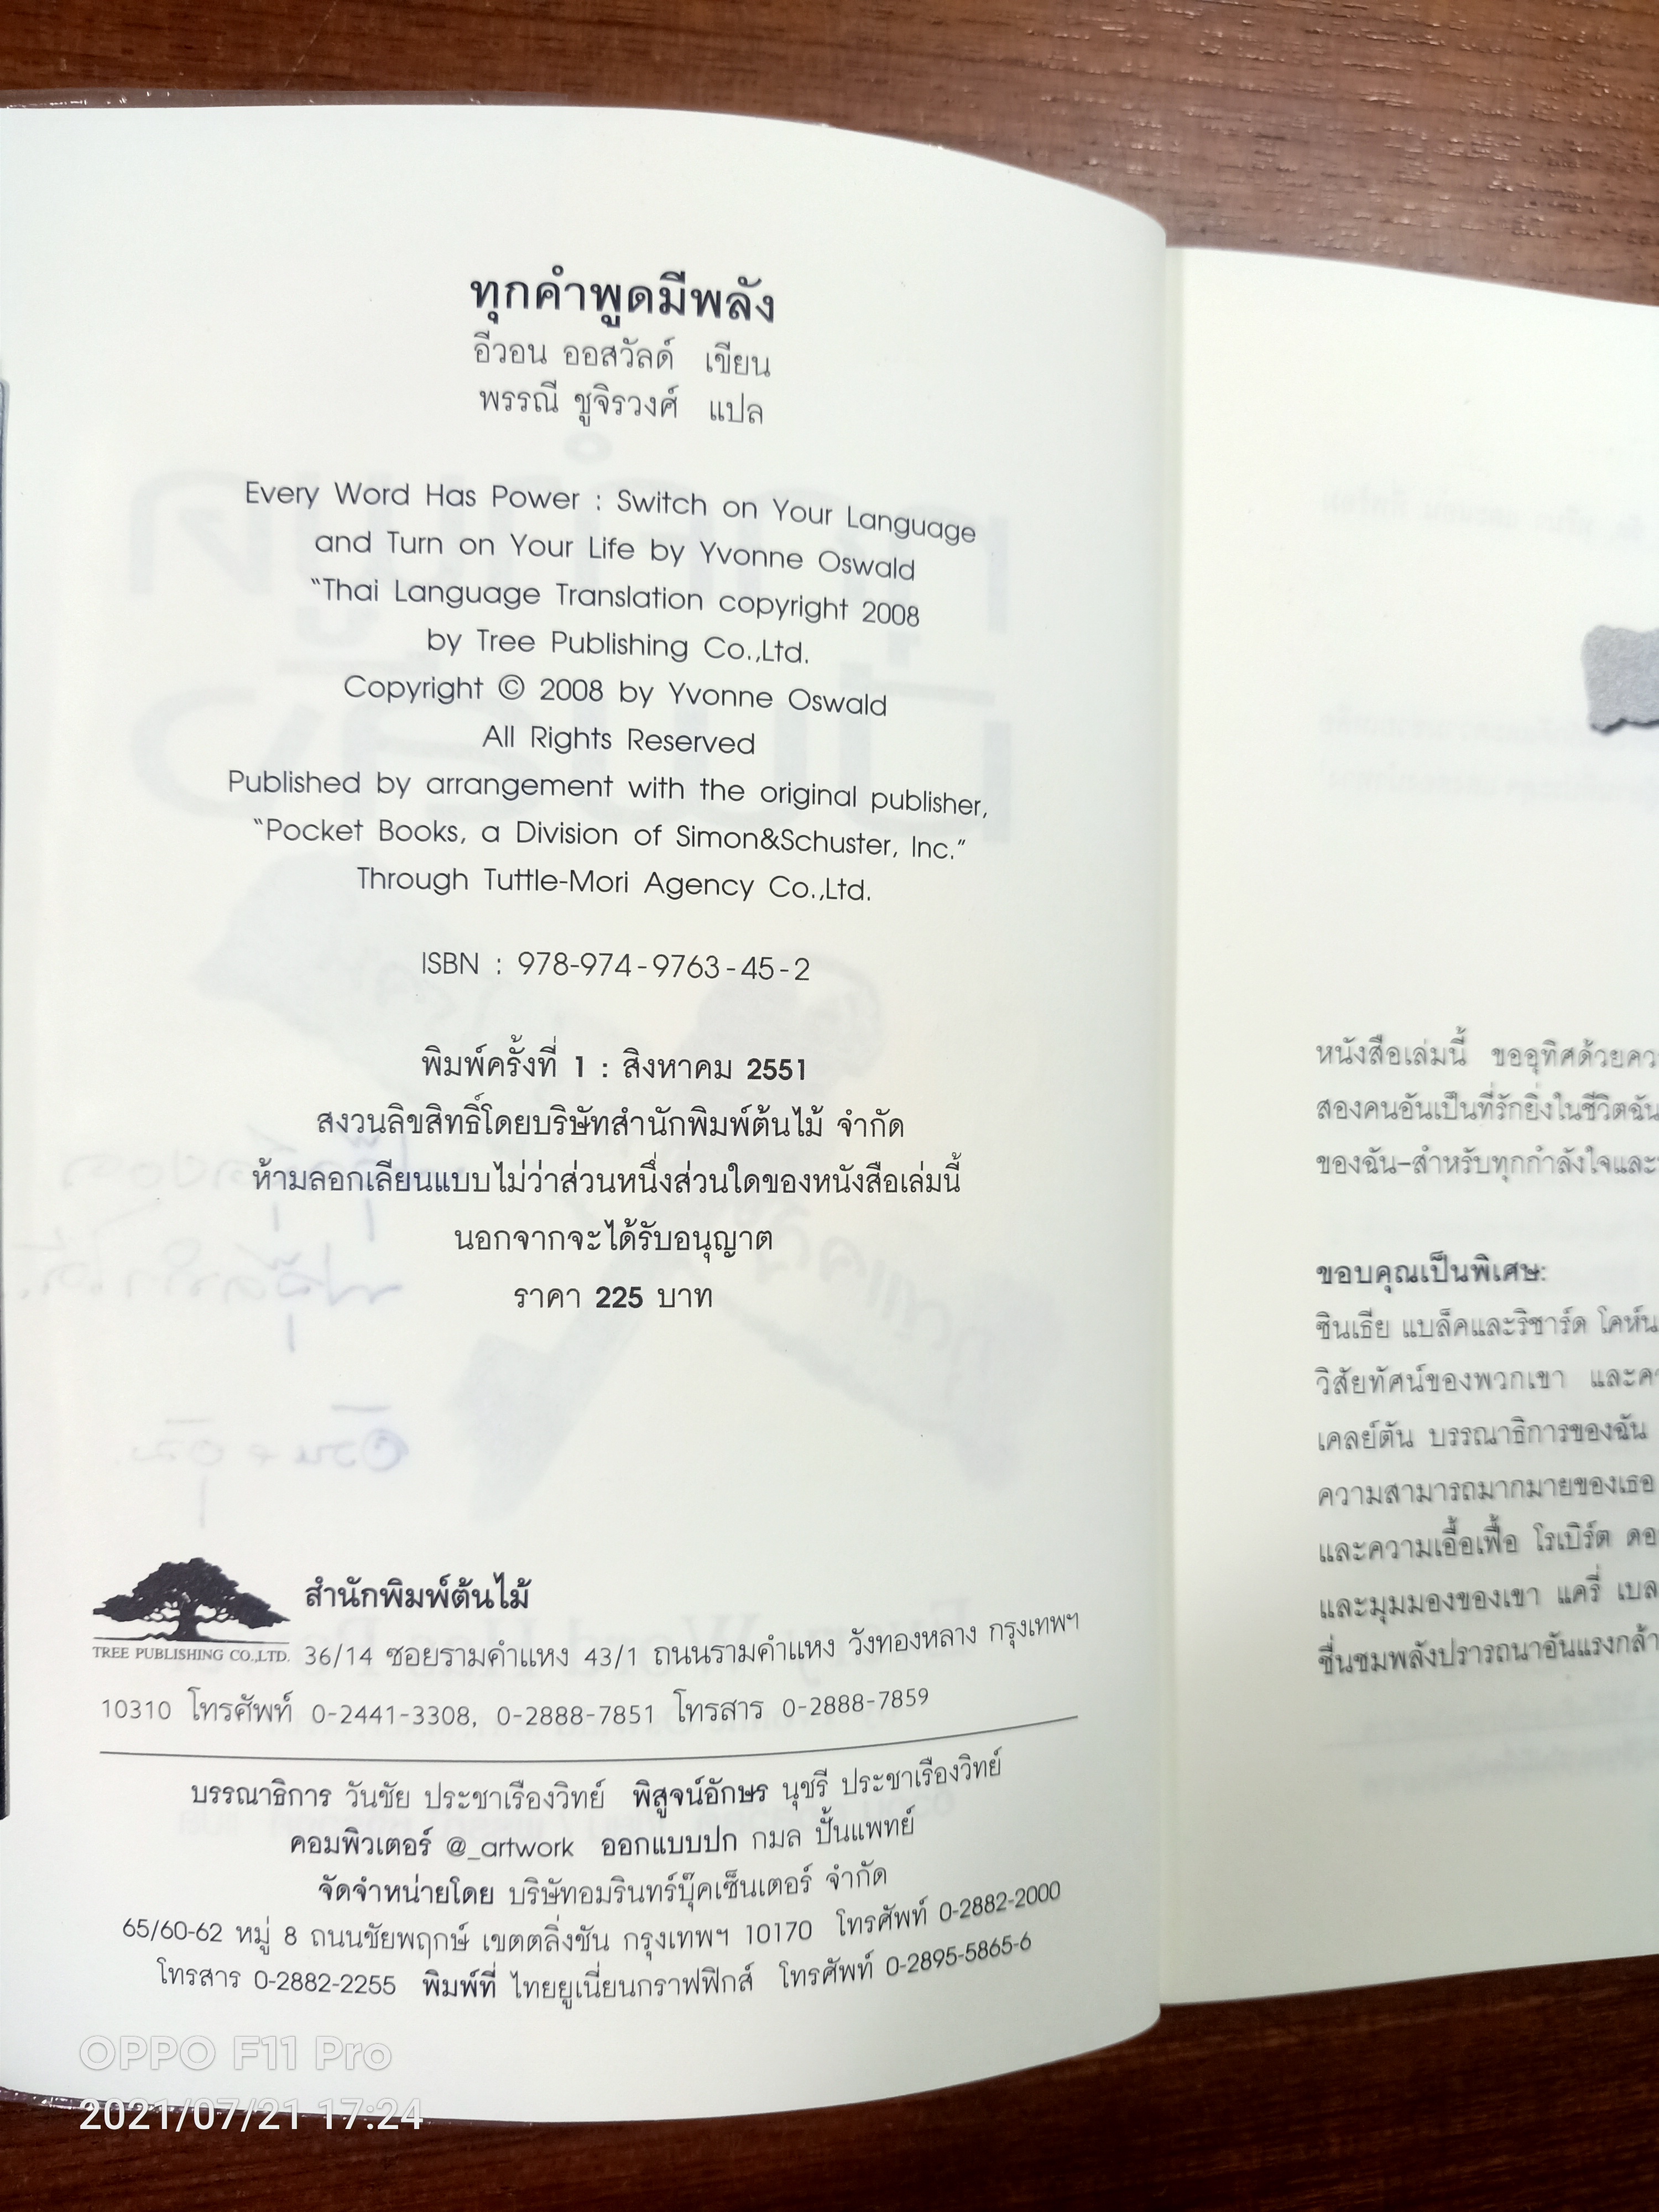 ทุกคำพูดมีพลัง
อีวอน ออสวัลด์ เขียน
พรรณี ชูจิรวงศ์ แปล
Every Word Has Power : Switch on Your Language
and Turn on Your Life by Yvonne Oswald
“Thai Language Translation copyright 2008
by Tree Publishing Co.,Ltd.
Copyright © 2008 by Yvonne Oswald
All Rights Reserved
Published by arrangement with the original publisher,
“Pocket Books, a Division of Simon&Schuster, Inc.”
Through Tuttle-Mori Agency Co.,Ltd.
ISBN : 978-974-9763-45-2
พิมพ์ครั้งที่ 1 : สิงหาคม 2551
สงวนลิขสิทธิ์โดยบริษัทสำนักพิมพ์ต้นไม้ จำกัด
ห้ามลอกเลียนแบบไม่ว่าส่วนหนึ่งส่วนใดของหนังสือเล่มนี้
นอกจากจะได้รับอนุญาต
ราคา 225 บาท
สำนักพิมพ์ต้นไม้
TREE PUBLISHING CO.,LTD. 36/14 ซอยรามคำแหง 43/1 ถนนรามคำแหง วังทองหลาง กรุงเทพฯ
10310 โทรศัพท์ 0-2441-3308, 0-2888-7851 โทรสาร 0-2888-7859
บรรณาธิการ วันชัย ประชาเรืองวิทย์ พิสูจน์อักษร นุชรี ประชาเรืองวิทย์
คอมพิวเตอร์ @_artwork ออกแบบปก กมล ปั้นแพทย์
จัดจำหน่ายโดย บริษัทอมรินทร์บุ๊คเซ็นเตอร์ จำกัด
65/60-62 หมู่ 8 ถนนชัยพฤกษ์ เขตตลิ่งชัน กรุงเทพฯ 10170 โทรศัพท์ 0-2882-2000
โทรสาร 0-2882-2255 พิมพ์ที่ ไทยยูเนี่ยนกราฟฟิกส์ โทรศัพท์ 0-2895-5865-6
หนังสือเล่มนี้ ขออุทิศด้วย
สองคนอันเป็นที่รักยิ่งในชีวิตฉัน
ของฉัน-สำหรับทุกกำลังใจและ
ขอบคุณเป็นพิเศษ:
ซินเธีย แบล็คและริชาร์ด โคห์น
วิสัยทัศน์ของพวกเขา และ
เคลย์ตัน บรรณาธิการของฉัน
ความสามารถมากมายของเธอ
และความเอื้อเฟื้อ โรเบิร์ต
และมุมมองของเขา แครี่
ชื่นชมพลังปรารถนาอันแรงกล้า
OPPO F11 Pro
2021/07/21 17:24